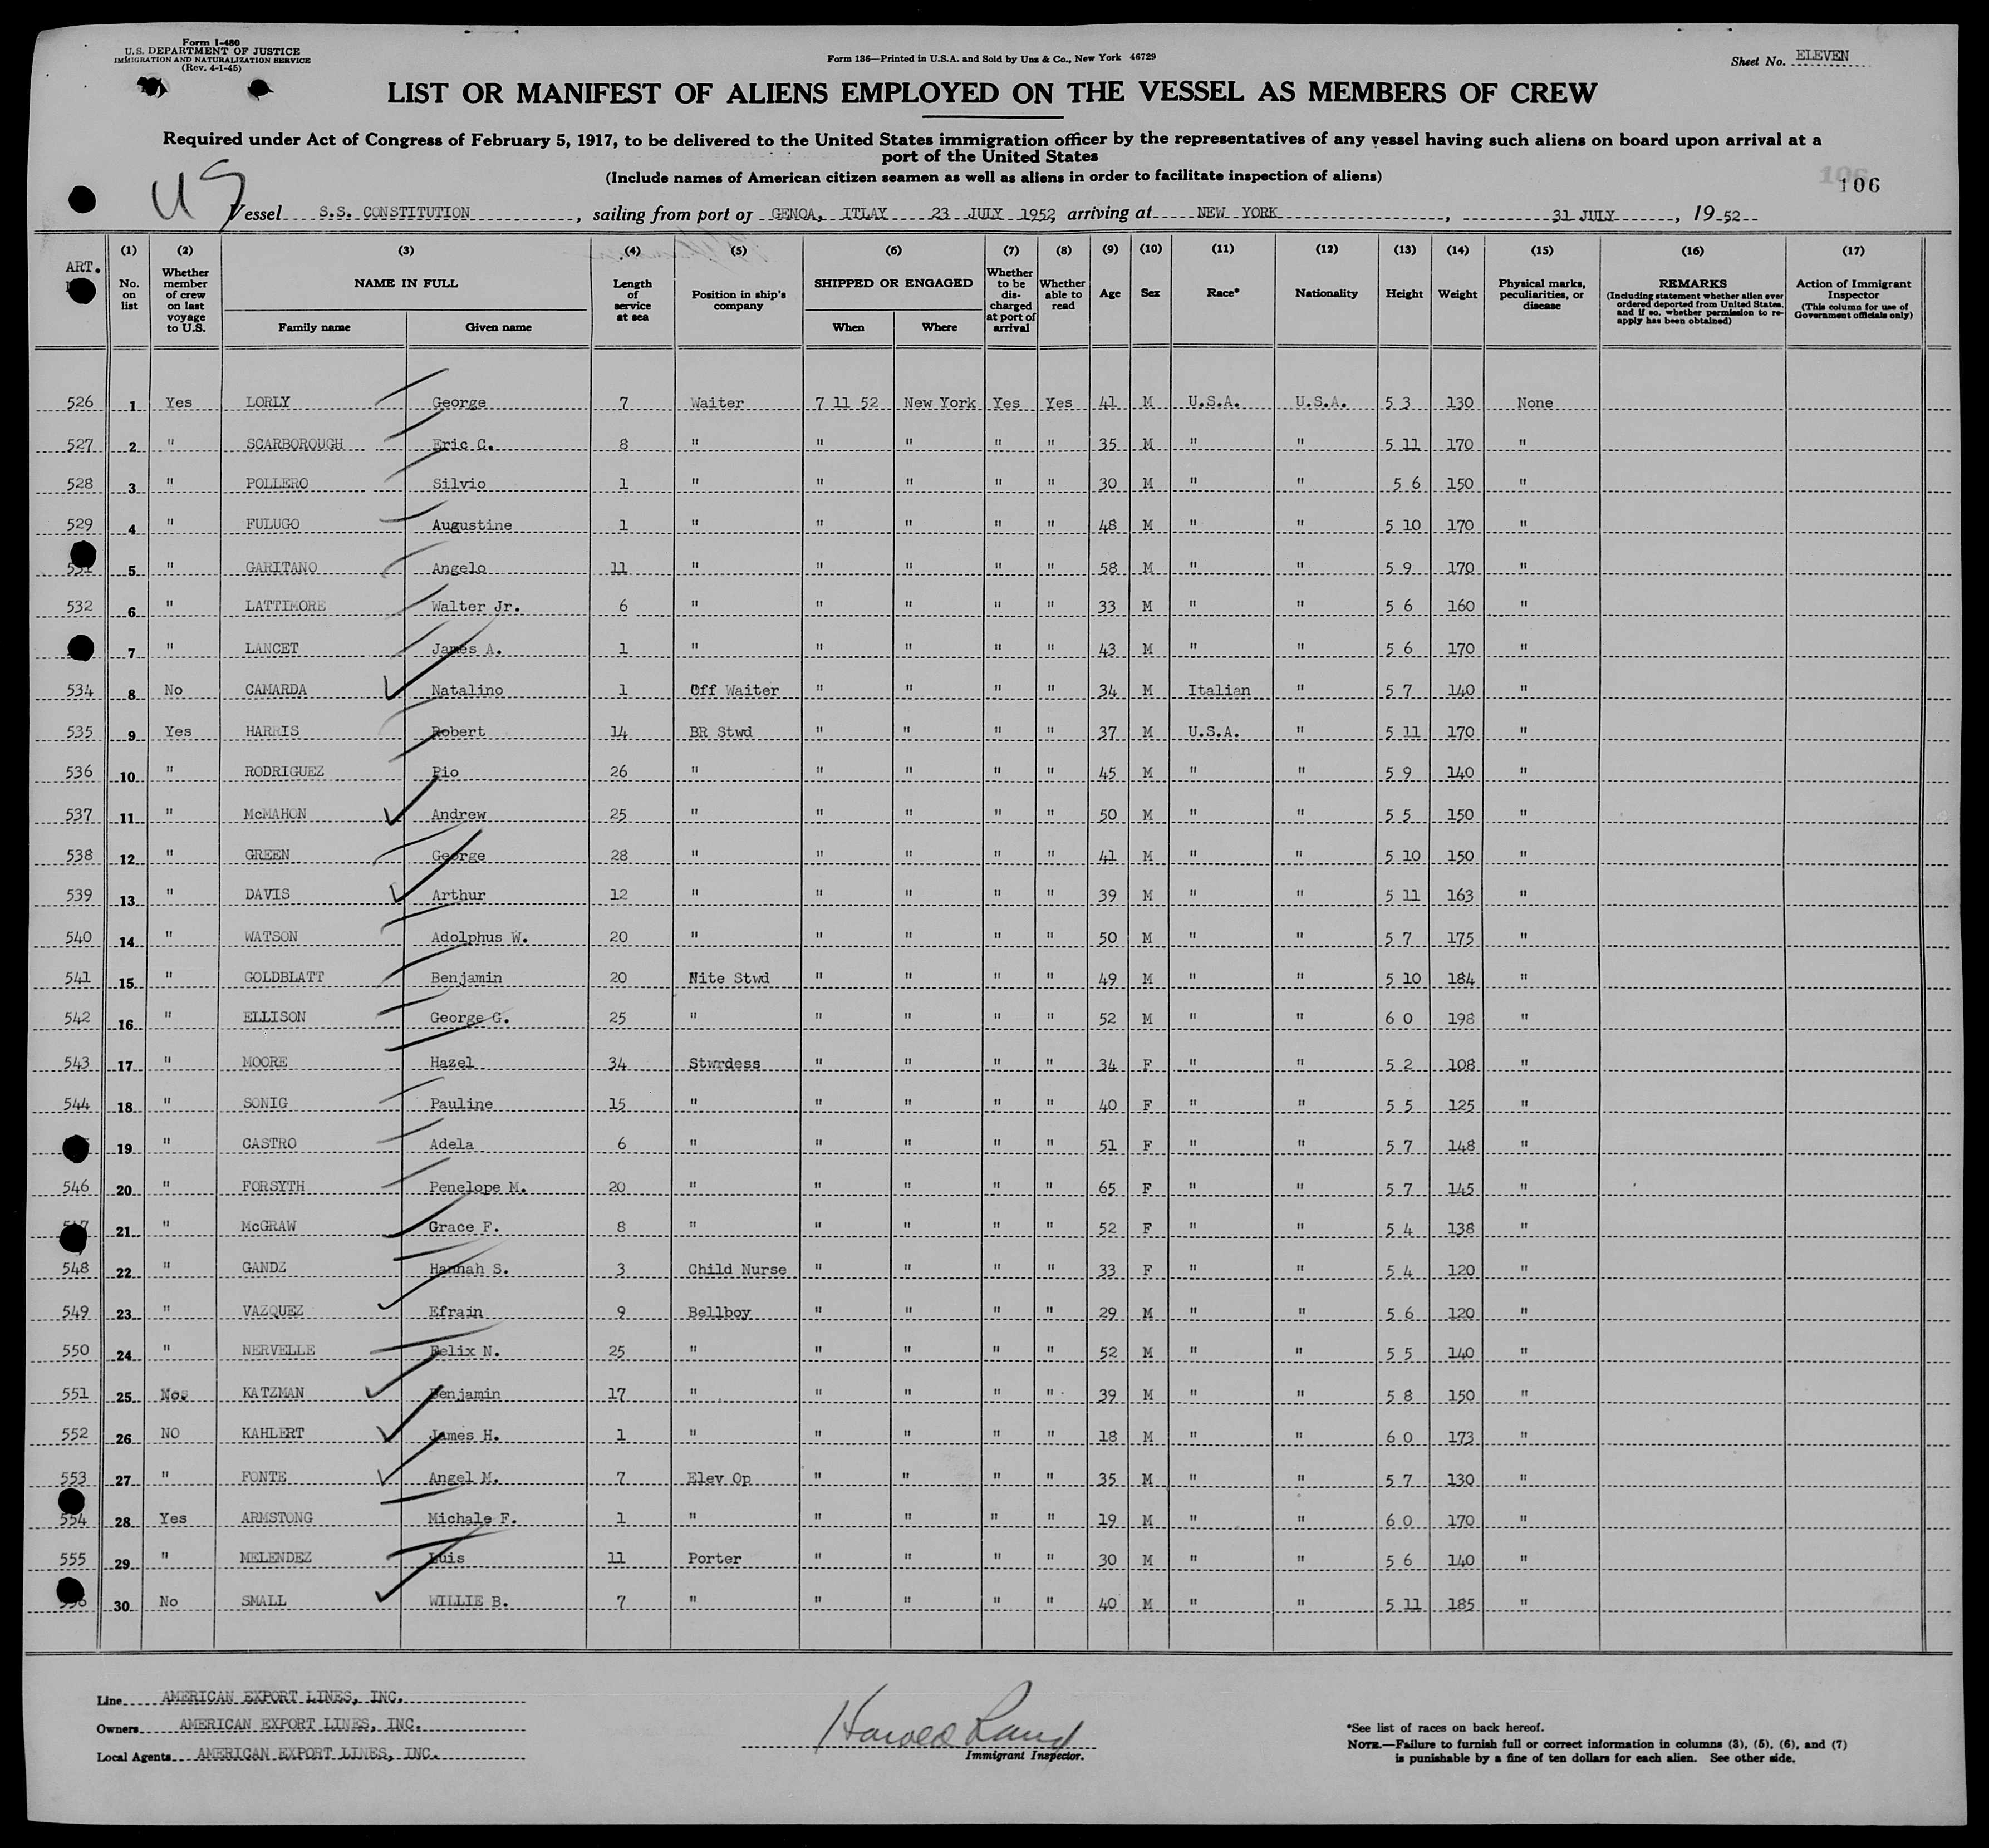 Form I-480
U.S. DEPARTMENT OF JUSTICE
IMMIGRATION AND NATURALIZATION SERVICE
(Rev. 4-1-45)
Form 136—Printed in U.S.A. and Sold by Unz & Co., New York 46729
Sheet No. ELEVEN
LIST OR MANIFEST OF ALIENS EMPLOYED ON THE VESSEL AS MEMBERS OF CREW
Required under Act of Congress of February 5, 1917, to be delivered to the United States immigration officer by the representatives of any vessel having such aliens on board upon arrival at a
port of the United States
(Include names of American citizen seamen as well as aliens in order to facilitate inspection of aliens)
106
US
Vessel S.S. CONSTITUTION, sailing from port of GENOA, ITLAY 23 JULY 1952, arriving at NEW YORK, 31 JULY, 1952
ART. (1) No. on list (2) Whether member of crew on last voyage to U.S. (3) NAME IN FULL Family name Given name (4) Length of service at sea (5) Position in ship's company (6) SHIPPED OR ENGAGED When Where (7) Whether to be discharged at port of arrival (8) Whether able to read (9) Age (10) Sex (11) Race* (12) Nationality (13) Height (14) Weight (15) Physical marks, peculiarities, or disease (16) REMARKS (Including statement whether alien ever ordered deported from United States, and if so, whether permission to re-apply has been obtained) (17) Action of Immigrant Inspector (This column for use of Government officials only)
526 1 Yes LORLY George 7 Waiter 7 11 52 New York Yes Yes 41 M U.S.A. U.S.A. 5 3 130 None
527 2 " SCARBOROUGH Eric C. 8 " " " " " 35 M " " 5 11 170 "
528 3 " POLLERO Silvio 1 " " " " " 30 M " " 5 6 150 "
529 4 " FULUGO Augustine 1 " " " " " 48 M " " 5 10 170 "
531 5 " GARITANO Angelo 11 " " " " " 58 M " " 5 9 170 "
532 6 " LATTIMORE Walter Jr. 6 " " " " " 33 M " " 5 6 160 "
7 " LANCET James A. 1 " " " " " 43 M " " 5 6 170 "
534 8 No CAMARDA Natalino 1 Off Waiter " " " " 34 M Italian " 5 7 140 "
535 9 Yes HARRIS Robert 14 BR Stwd " " " " 37 M U.S.A. " 5 11 170 "
536 10 " RODRIGUEZ Pio 26 " " " " " 45 M " " 5 9 140 "
537 11 " McMAHON Andrew 25 " " " " " 50 M " " 5 5 150 "
538 12 " GREEN George 28 " " " " " 41 M " " 5 10 150 "
539 13 " DAVIS Arthur 12 " " " " " 39 M " " 5 11 163 "
540 14 " WATSON Adolphus W. 20 " " " " " 50 M " " 5 7 175 "
541 15 " GOLDBLATT Benjamin 20 Nite Stwd " " " " 49 M " " 5 10 184 "
542 16 " ELLISON George G. 25 " " " " " 52 M " " 6 0 198 "
543 17 " MOORE Hazel 34 Stwrdess " " " " 34 F " " 5 2 108 "
544 18 " SONIG Pauline 15 " " " " " 40 F " " 5 5 125 "
19 " CASTRO Adela 6 " " " " " 51 F " " 5 7 148 "
546 20 " FORSYTH Penelope M. 20 " " " " " 65 F " " 5 7 145 "
547 21 " McGRAW Grace F. 8 " " " " " 52 F " " 5 4 138 "
548 22 " GANDZ Hannah S. 3 Child Nurse " " " " 33 F " " 5 4 120 "
549 23 " VAZQUEZ Efrain 9 Bellboy " " " " 29 M " " 5 6 120 "
550 24 " NERVELLE Felix N. 25 " " " " " 52 M " " 5 5 140 "
551 25 KATZMAN Benjamin 17 " " " " " 39 M " " 5 8 150 "
552 26 NO KAHLERT James H. 1 " " " " " 18 M " " 6 0 173 "
553 27 " FONTE Angel M. 7 Elev Op " " " " 35 M " " 5 7 130 "
554 28 Yes ARMSTONG Michale F. 1 " " " " " 19 M " " 6 0 170 "
555 29 " MELENDEZ Luis 11 Porter " " " " 30 M " " 5 6 140 "
556 30 No SMALL WILLIE B. 7 " " " " " 40 M " " 5 11 185 "
Line AMERICAN EXPORT LINES, INC.
Owners AMERICAN EXPORT LINES, INC.
Local Agents AMERICAN EXPORT LINES, INC.
Harold Land
Immigrant Inspector.
*See list of races on back hereof.
NOTE.—Failure to furnish full or correct information in columns (3), (5), (6), and (7)
is punishable by a fine of ten dollars for each alien. See other side.